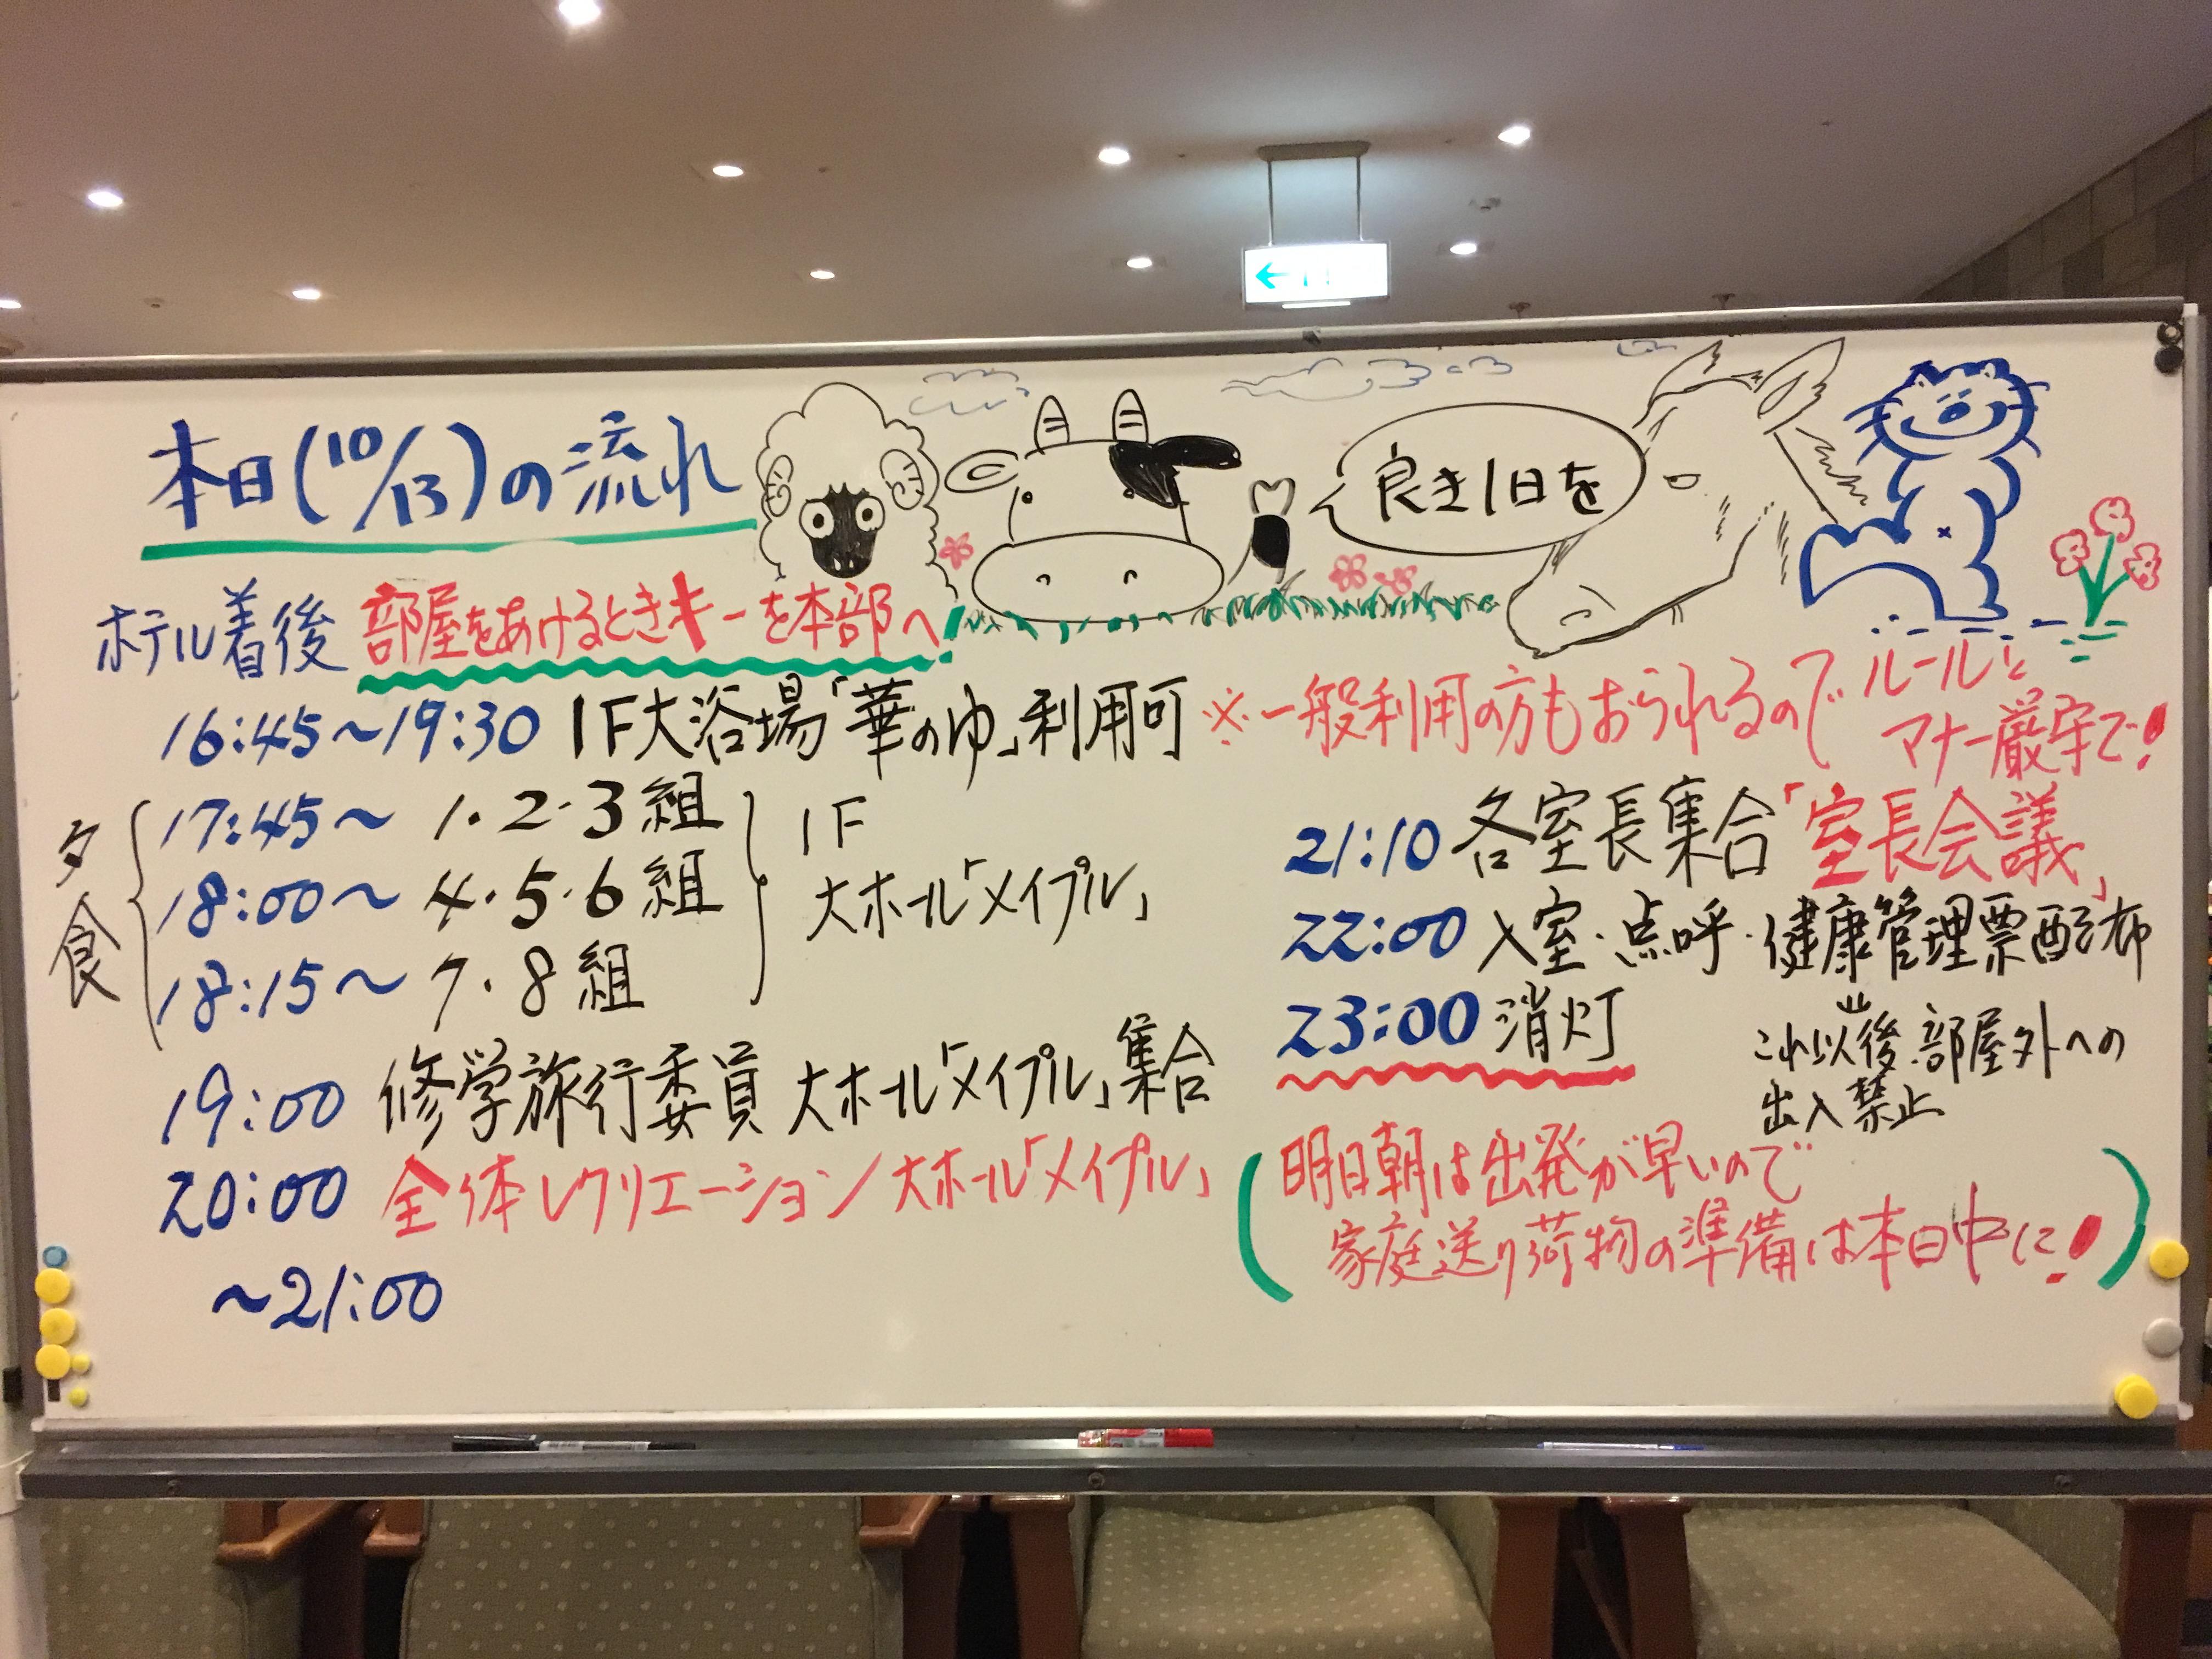 本日(10/13)の流れ
良き1日を
ホテル着後 部屋をあけるときキーを本部へ!
16:45〜19:30 1F大浴場「華のゆ」利用可 ※一般利用の方もおられるのでルールと
マナー厳守で!
夕食
17:45〜 1・2・3組
18:00〜 4・5・6組
18:15〜 7・8組
1F
大ホール「メイプル」
19:00 修学旅行委員 大ホール「メイプル」集合
20:00 全体レクリエーション 大ホール「メイプル」
〜21:00
21:10 各室長集合「室長会議」
22:00 入室・点呼・健康管理票配布
23:00 消灯
これ以後、部屋外への
出入禁止
(明日朝は出発が早いので
家庭送り荷物の準備は本日中に!)